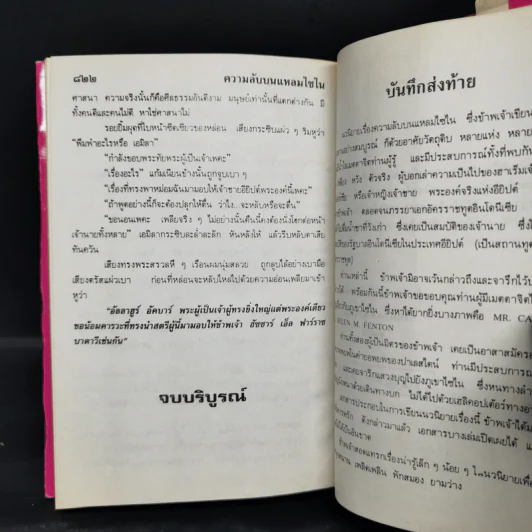 ๘๒๒ ความลับบนแหลมไซไน
ศาสนา ความจริงนั้นก็คือศีลธรรมอันดีงาม มนุษย์เท่านั้นที่แตกต่างกัน มี
ทั้งคนดีและคนไม่ดี หาใช่ศาสนาไม่
รอยยิ้มผุดที่ใบหน้าซีดเซียวของหล่อน เสียงกระซิบแผ่ว ๆ ริมหูว่า
"พึมพำอะไรหรือ เอมิลา"
"กำลังขอบพระทัยพระผู้เป็นเจ้าเพคะ"
"เรื่องอะไร" แก้มเนียนข้างนั้นถูกจูบเบา ๆ
"เรื่องที่ทรงพาหม่อมฉันมามอบให้เจ้าชายอียิปต์พระองค์นี้เพคะ"
"ถ้าพูดอย่างนี้ก็จะต้องปลุกให้ตื่น ว่าไง..จะหลับหรือจะตื่น"
"ขอนอนเพคะ เพลียจริง ๆ ไม่อย่างนั้นคืนนี้คงต้องนั่งโงกต่อหน้า
เจ้านายทั้งหลาย" เอมิลากระซิบละล่ำละลัก หันหลังให้ แล้วรีบหลับตาเสีย
ทันควัน
เสียงทรงพระสรวลที่ ๆ เรือนผมนุ่มสลวย ถูกลูบไล้อย่างเบามือ
เสียงตรัสแผ่วเบา ก่อนที่หล่อนจะหลับใหลไปด้วยความอ่อนเพลียมาเข้า
หูว่า
"อัลลาฮูร์ อัคบาร์ พระผู้เป็นเจ้าผู้ทรงยิ่งใหญ่แต่พระองค์เดียว
ขอน้อมคารวะที่ทรงนำสตรีผู้นี้มามอบให้ข้าพเจ้า ฮัซซาร์ เอ็ล ฟาร์ราช
บาดาวีเช่นกัน"
จบบริบูรณ์
บันทึกส่งท้าย
นวนิยายเรื่องความลับบนแหลมไซไน ซึ่งข้าพเจ้าเขียน
อย่างสมบูรณ์ ก็ด้วยอาศัยวัตถุดิบ หลายแห่ง หลาย
เมตตาจิตท่านผู้รู้ และมีประสบการณ์ทั้งที่พบกัน
หวัง ตัวจริง ผู้บอกเล่าความเป็นไปของฮาเร็มเจ้า
หรือเจ้าหญิงเจ้าชาย พระองค์จริงแห่งอียิปต์
ตลอดจนภรรยาเอกอัครราชทูตอินโดนีเซีย
ซึ่งเคยเป็นสมบัติของเจ้านายมา
รัฐบาลอินโดนีเซียในประเทศอียิปต์ (เป็นสถานทูต
ท่านเหล่านี้ ข้าพเจ้ามิอาจเว้นกล่าวถึงและจารึกไว้
พร้อมกันนี้ข้าพเจ้าขอขอบคุณท่านผู้มีเมตตาจิต
ภูเขาไซไน ซึ่งหาได้ยากยิ่งบางภาพคือ MR. CA
M. FENTON
ท่านทั้งสองผู้เป็นมิตรของข้าพเจ้า เคยเป็นอาสาสมัคร
อพยพของปาเลสไตน์ ท่านมีประสบการณ์
และเคยจาริกแสวงบุญไปยังภูเขาไซไน ซึ่งหนทาง
ด้วยเดินทางบก ไม่ได้ไปด้วยเฮลิคอปเตอร์ทาง
เอกสารประกอบในการเขียนนวนิยายเรื่องนี้ ข้าพเจ้าได้
ดังกล่าวมาแล้ว เอกสารบางเล่มเปิดเผยได้
ข้าพเจ้าสอดแทรกเรื่องน่ารู้เล็ก ๆ น้อย ๆ ในนวนิยายเพื่อ
เพลิดเพลิน พักสมอง ยามว่าง